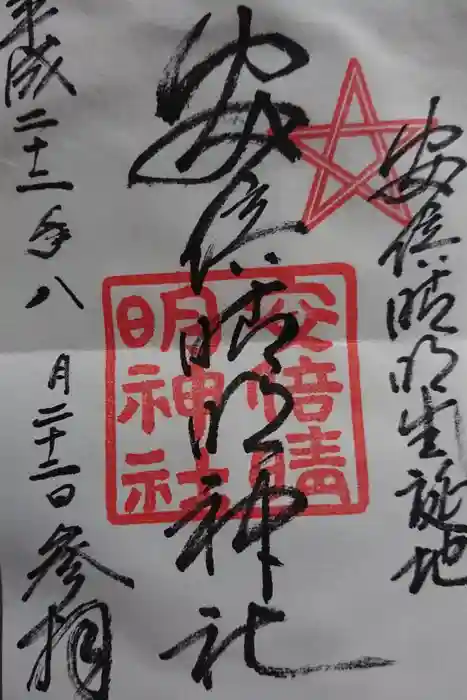 安倍晴明生誕地
安倍晴明神社
安倍晴
明神社
平成二十二年八月二十二日参拝